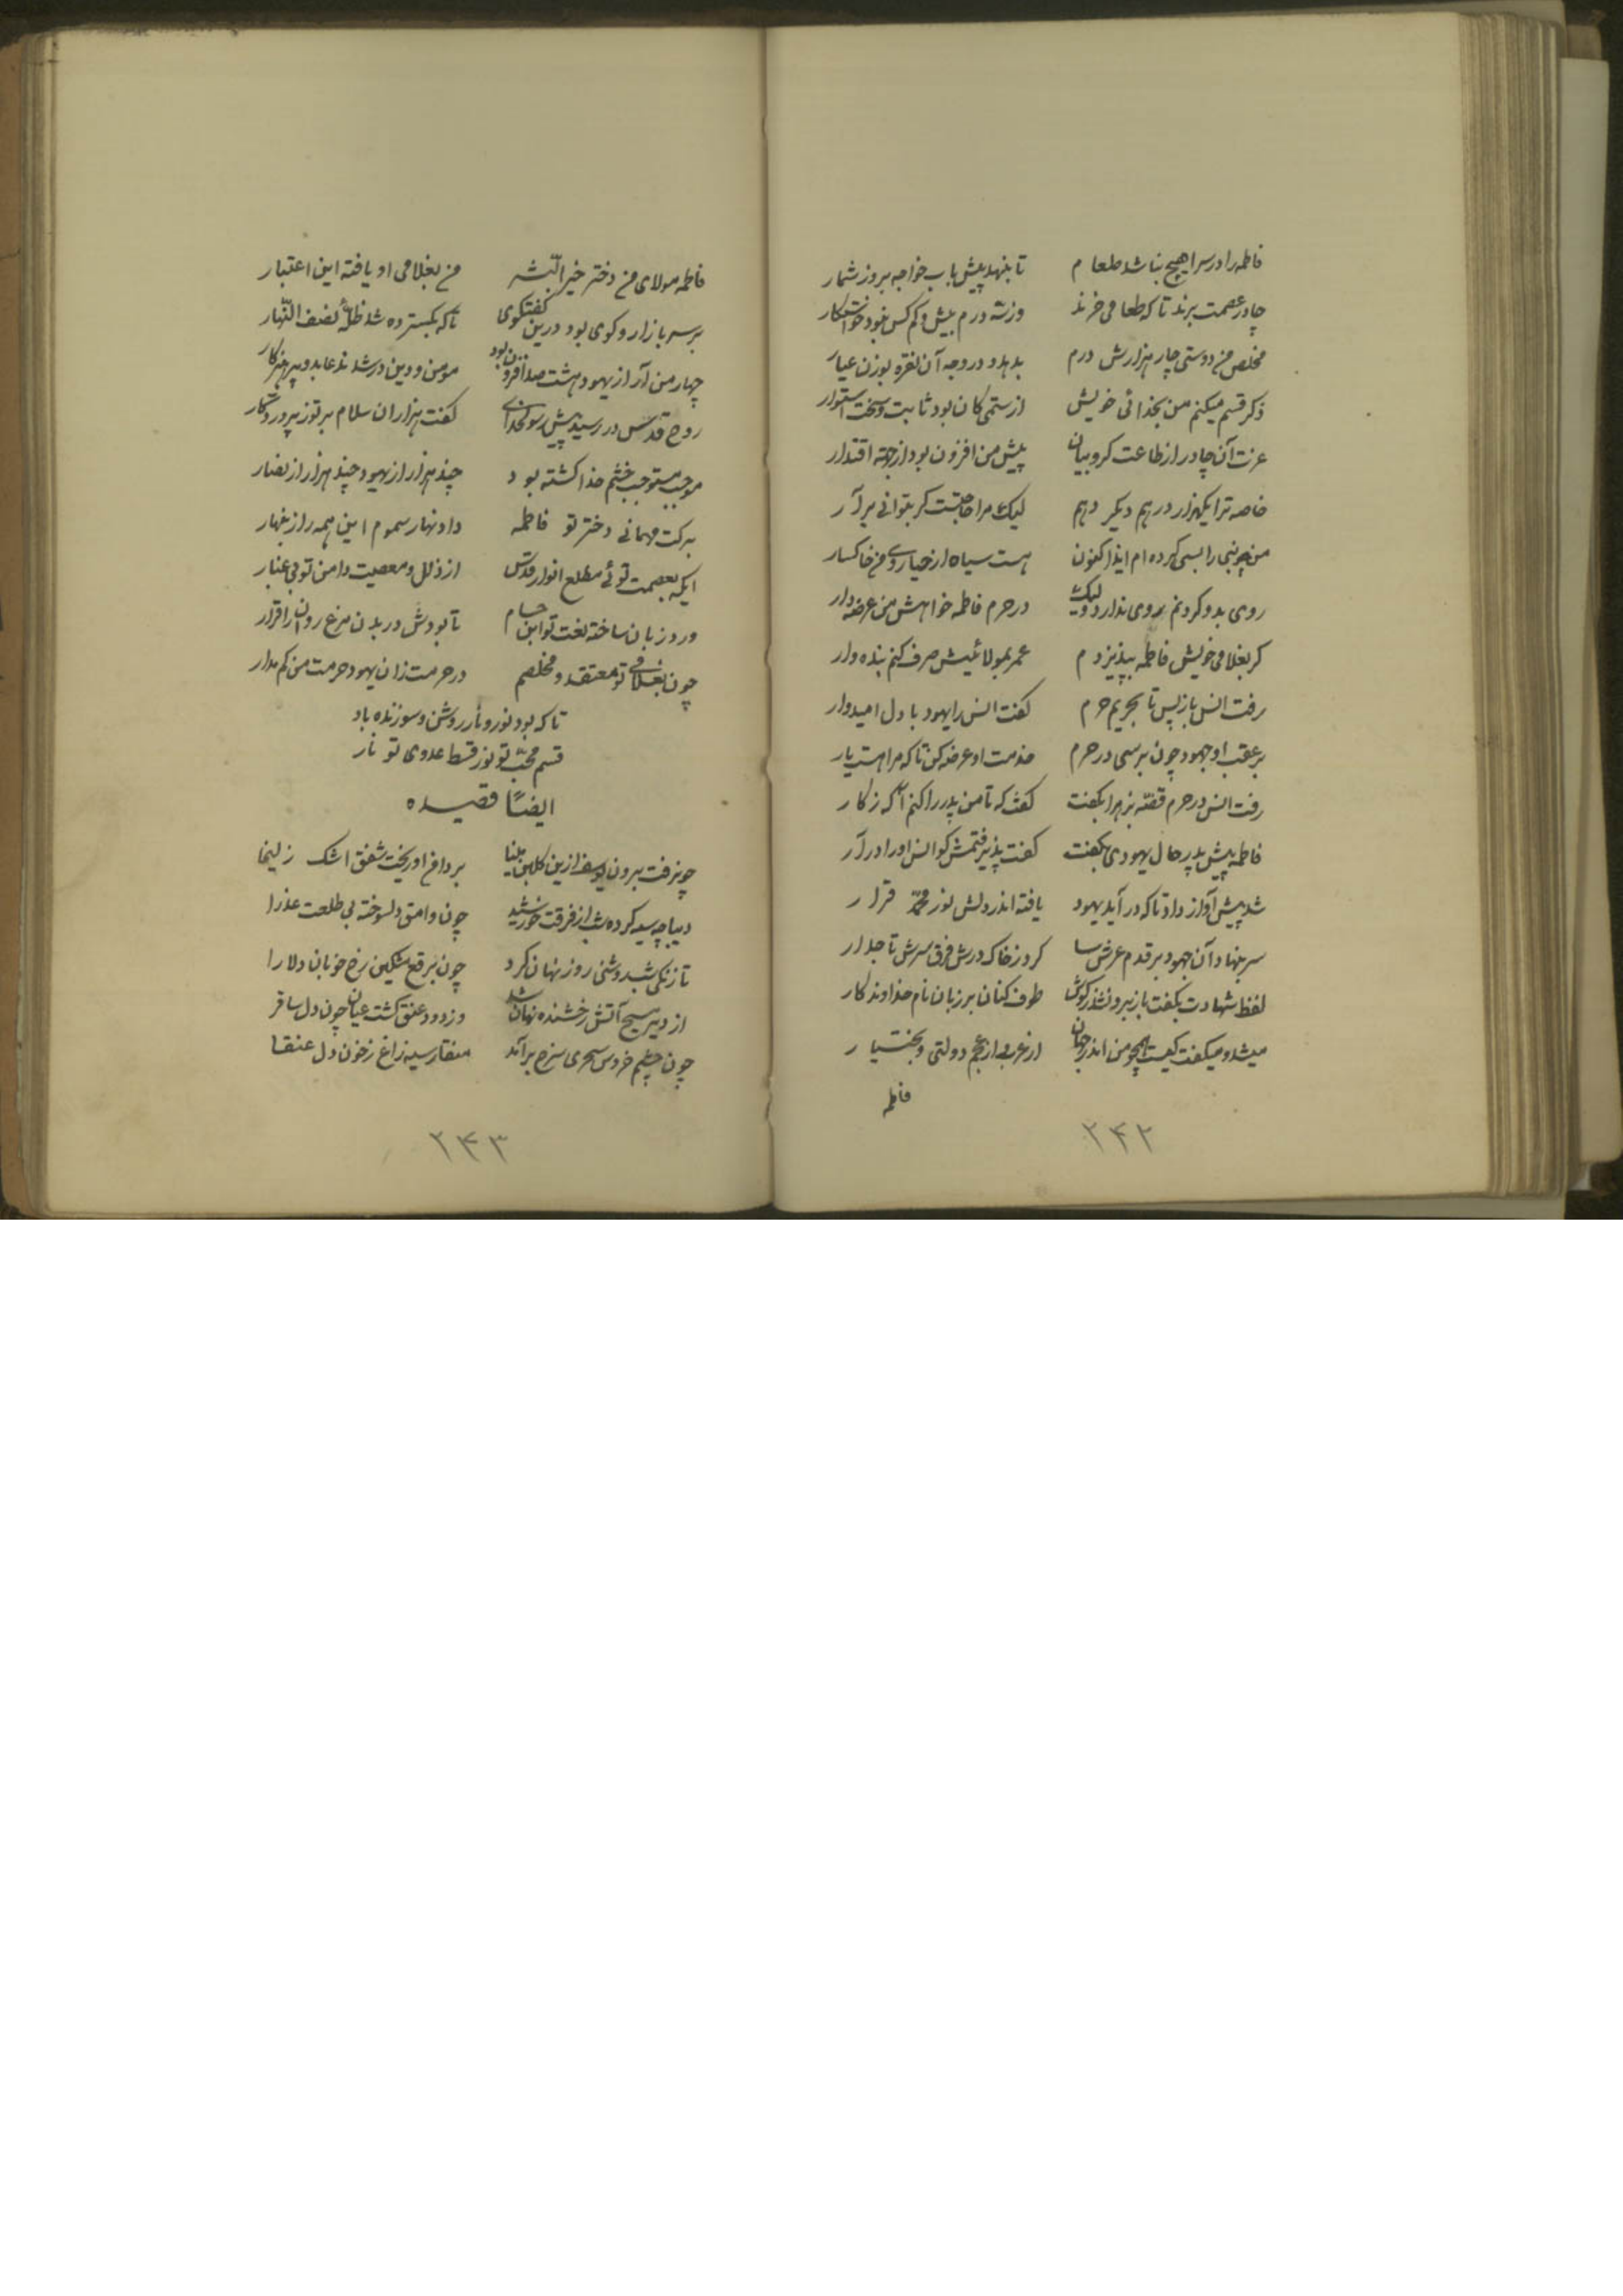 فاطمه را در سرا هیچ نباشد طعام تا بنهد پیش باب خواجه بروز شمار
چادر عصمت برند تا که طعامی خرند وز سه درم بیش و کم کس نبود خواستکار
مخلص من دوستی چار هزارش درم بدهد در وجه آن نقره بوزن عیار
ذکر قسم میکنم من بخدائی خویش از ستمی کان بود ثابت و سخت استوار
عزت آن چادر از طاعت کروبیان پیش من افزون بود از جهة اقتدار
خاصه ترا یکهزار درهم دیکر دهم لیک مرا حاجتست کر بتوانی برآر
من چو نبی را بسی کرده ام ایذا کنون هست سیاه از خیا روی من خاکسار
روی بدو کردنم روی ندارد ولیک در حرم فاطمه خواهش من عرضه دار
کر بغلامی خویش فاطمه بپذیردم عمر بمولائیش صرف کنم بنده وار
رفت انس باز پس تا بحریم حرم کفت انس را یهود با دل امیدوار
بر عقب او جهود چون برسی در حرم خدمت او عرضه کن تا که مرا هست یار
رفت انس در حرم قصّه بزهرا بکفت کفت که تا من پدر را کنم آکه ز کار
فاطمه پیش پدر حال یهودی بکفت کفت پذیرفتمش کو انس او را درآر
شد پیش آواز داد تا که درآید یهود یافته اندر دلش نور محمّد قرار
سر بنهاد آن جهود بر قدم عرش سا کرد ز خاک درش فرق سرش تاجدار
لفظ شهادت بکفت باز برون شد ز کوش طوف کنان بر زبان نام خداوندکار
میشد و میکفت کیست همچو من اندر جهان از عرب از عجم دولتی و بختیار
فاطمه
۲۴۲
فاطمه مولای من دختر خیر البشر من بغلامی او یافته این اعتبار
بر سر بازار و کوی بود درین کفتکوی تا که بکسترده شد ظلّ نصف النّهار
چهار من آر از یهود هشت صد افزون بود مومن و دین در شدند عابد و پرهیزکار
روح قدس در رسید پیش رسول خدای کفت هزاران سلام بر تو ز پروردکار
موجب مستوجب خشم خدا کشته بود چند هزار از یهود چند هزار از نصار
برکت مهمانی دختر تو فاطمه داد نهار سموم این همه را زینهار
ایکه بعصمت توئی مطلع انوار قدس از ذلل و معصیت دامن تو بی غبار
ورد زبان ساخته نعت تو ابن حسام تا بودش در بدن مرغ روان را قرار
چون بغلامی تو معتقد و مخلصم در حرمت زان یهود حرمت من کم مدار
تا که بود نور و نار روشن و سوزنده باد
قسم محبّ تو نور قسط عدوی تو نار
ایضاً قصیده
چونرفت برون یوسف ازین کلبهٔ مینا بر دامن او ریخت شفق اشک زلیخا
دیباچه سیه کرده شب از فرقت خورشید چون وامق دلسوخته بی طلعت عذرا
تا زنکی شب روشنی روز نهان کرد چون برقع مشکین رخ خوبان دلارا
از دیر مسیح آتش رخشنده نهان شد وز دود عنق کشت عیان چون دل ساقر
چون چشم خروس سحری سرخ برآمد منقار سیه زاغ ز خون دل عنقا
۲۴۳